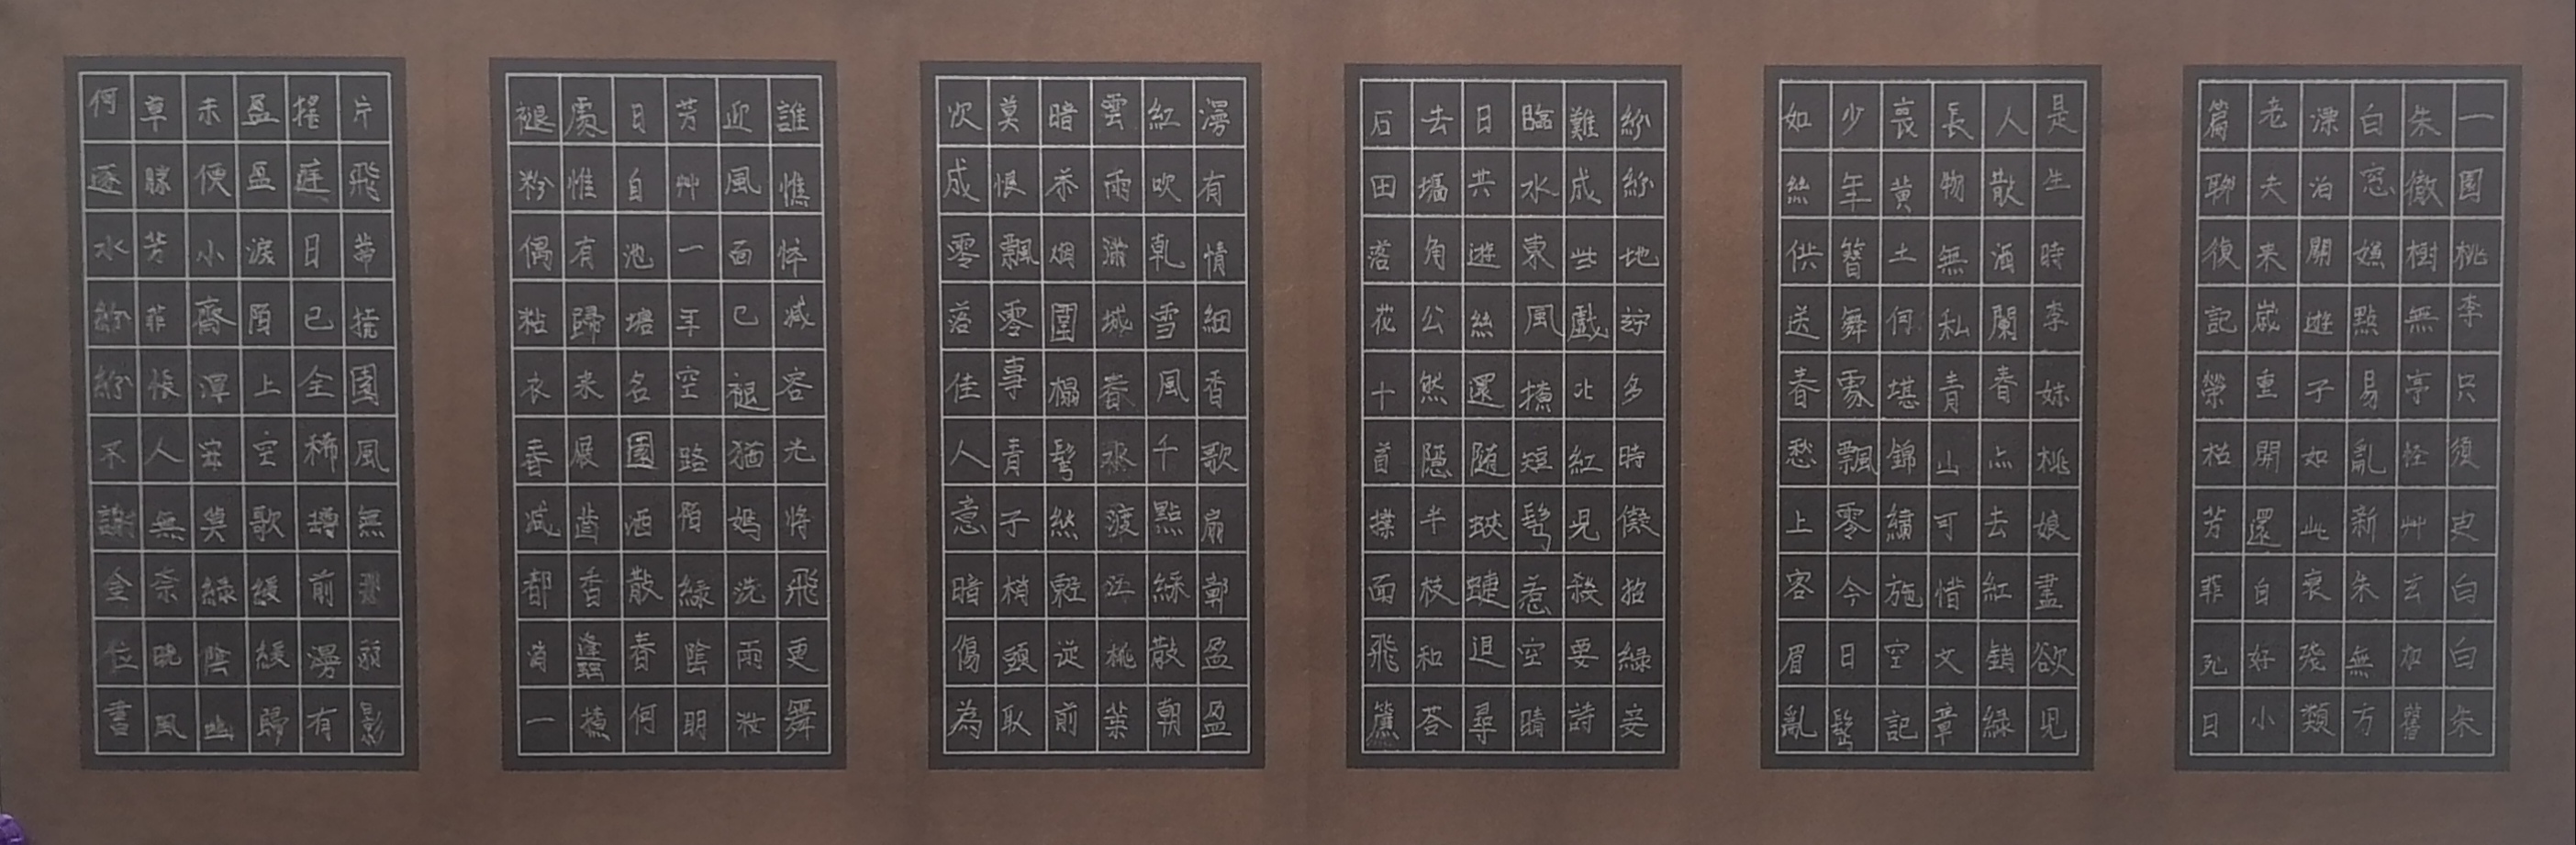 一園桃李只須臾白白朱
朱徹樹無亭怪艸玄加舊
白窓嫌點易亂新朱無方
漂泊關遊子如此衰殘類
老夫来歲重開還自好小
篇聊復記榮枯芳菲死日
是生時李妹桃娘盡欲見
人散酒闌春亦去紅銷綠
長物無私青山可惜文章
喪黃土何堪錦繡施空記
少年簪舞處飄零今日鬢
如絲供送春愁上客眉亂
紛紛地竚多時儗招綠妾
難成些戲比紅兒殺要詩
臨水東風撩短鬢惹空晴
日共遊絲還随蛺蝶追尋
去墻角公然隱半枝和荅
石田落花十首撲面飛簾
漫有情細香歌扇鄣盈盈
紅吹乾雪風千點綵散朝
雲雨滿城春水渡江桃葉
暗茶烟圍榻鬢絲輕從前
莫悵飄零事青子梢頭取
次成零落佳人意暗傷為
誰憔悴减容光将飛更舞
迎風面已褪猶嫣洗雨妝
芳艸一年空路陌綠陰明
日自池塘名園酒散春何
處惟有歸来屐齒香蠭撩
褪粉偶粘衣香减都消一
片飛蒂撓園風無那弱影
摇庭日已全稀增前漫有
盈盈淚陌上空歌緩緩歸
未便小齋渾寂莫綠陰幽
草勝芳菲悵人無奈晚風
何逐水紛紛不謝全位書